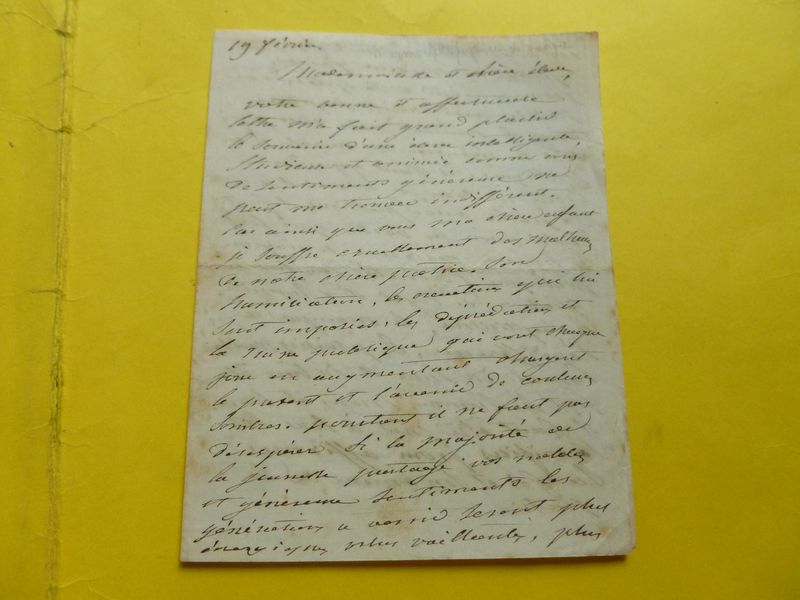 19 février
Mademoiselle et chère élève,
votre bonne et affectueuse
lettre m'a fait grand plaisir
le souvenir d'une élève intelligente,
studieuse et animée comme vous
de sentiments généreux ne
peut me trouver indifférent.
Car ainsi que vous ma chère enfant
je souffre cruellement des malheurs
de notre chère patrie. Son
humiliation, les exactions qui lui
sont imposées, les déprédations et
la ruine publique qui vont chaque
jour en augmentant chargent
le présent et l'avenir de couleurs
sombres. pourtant il ne faut pas
désespérer si la majorité de
la jeunesse partage vos nobles
et généreux sentiments les
générations à venir seront plus
énergiques, plus vaillantes, plus